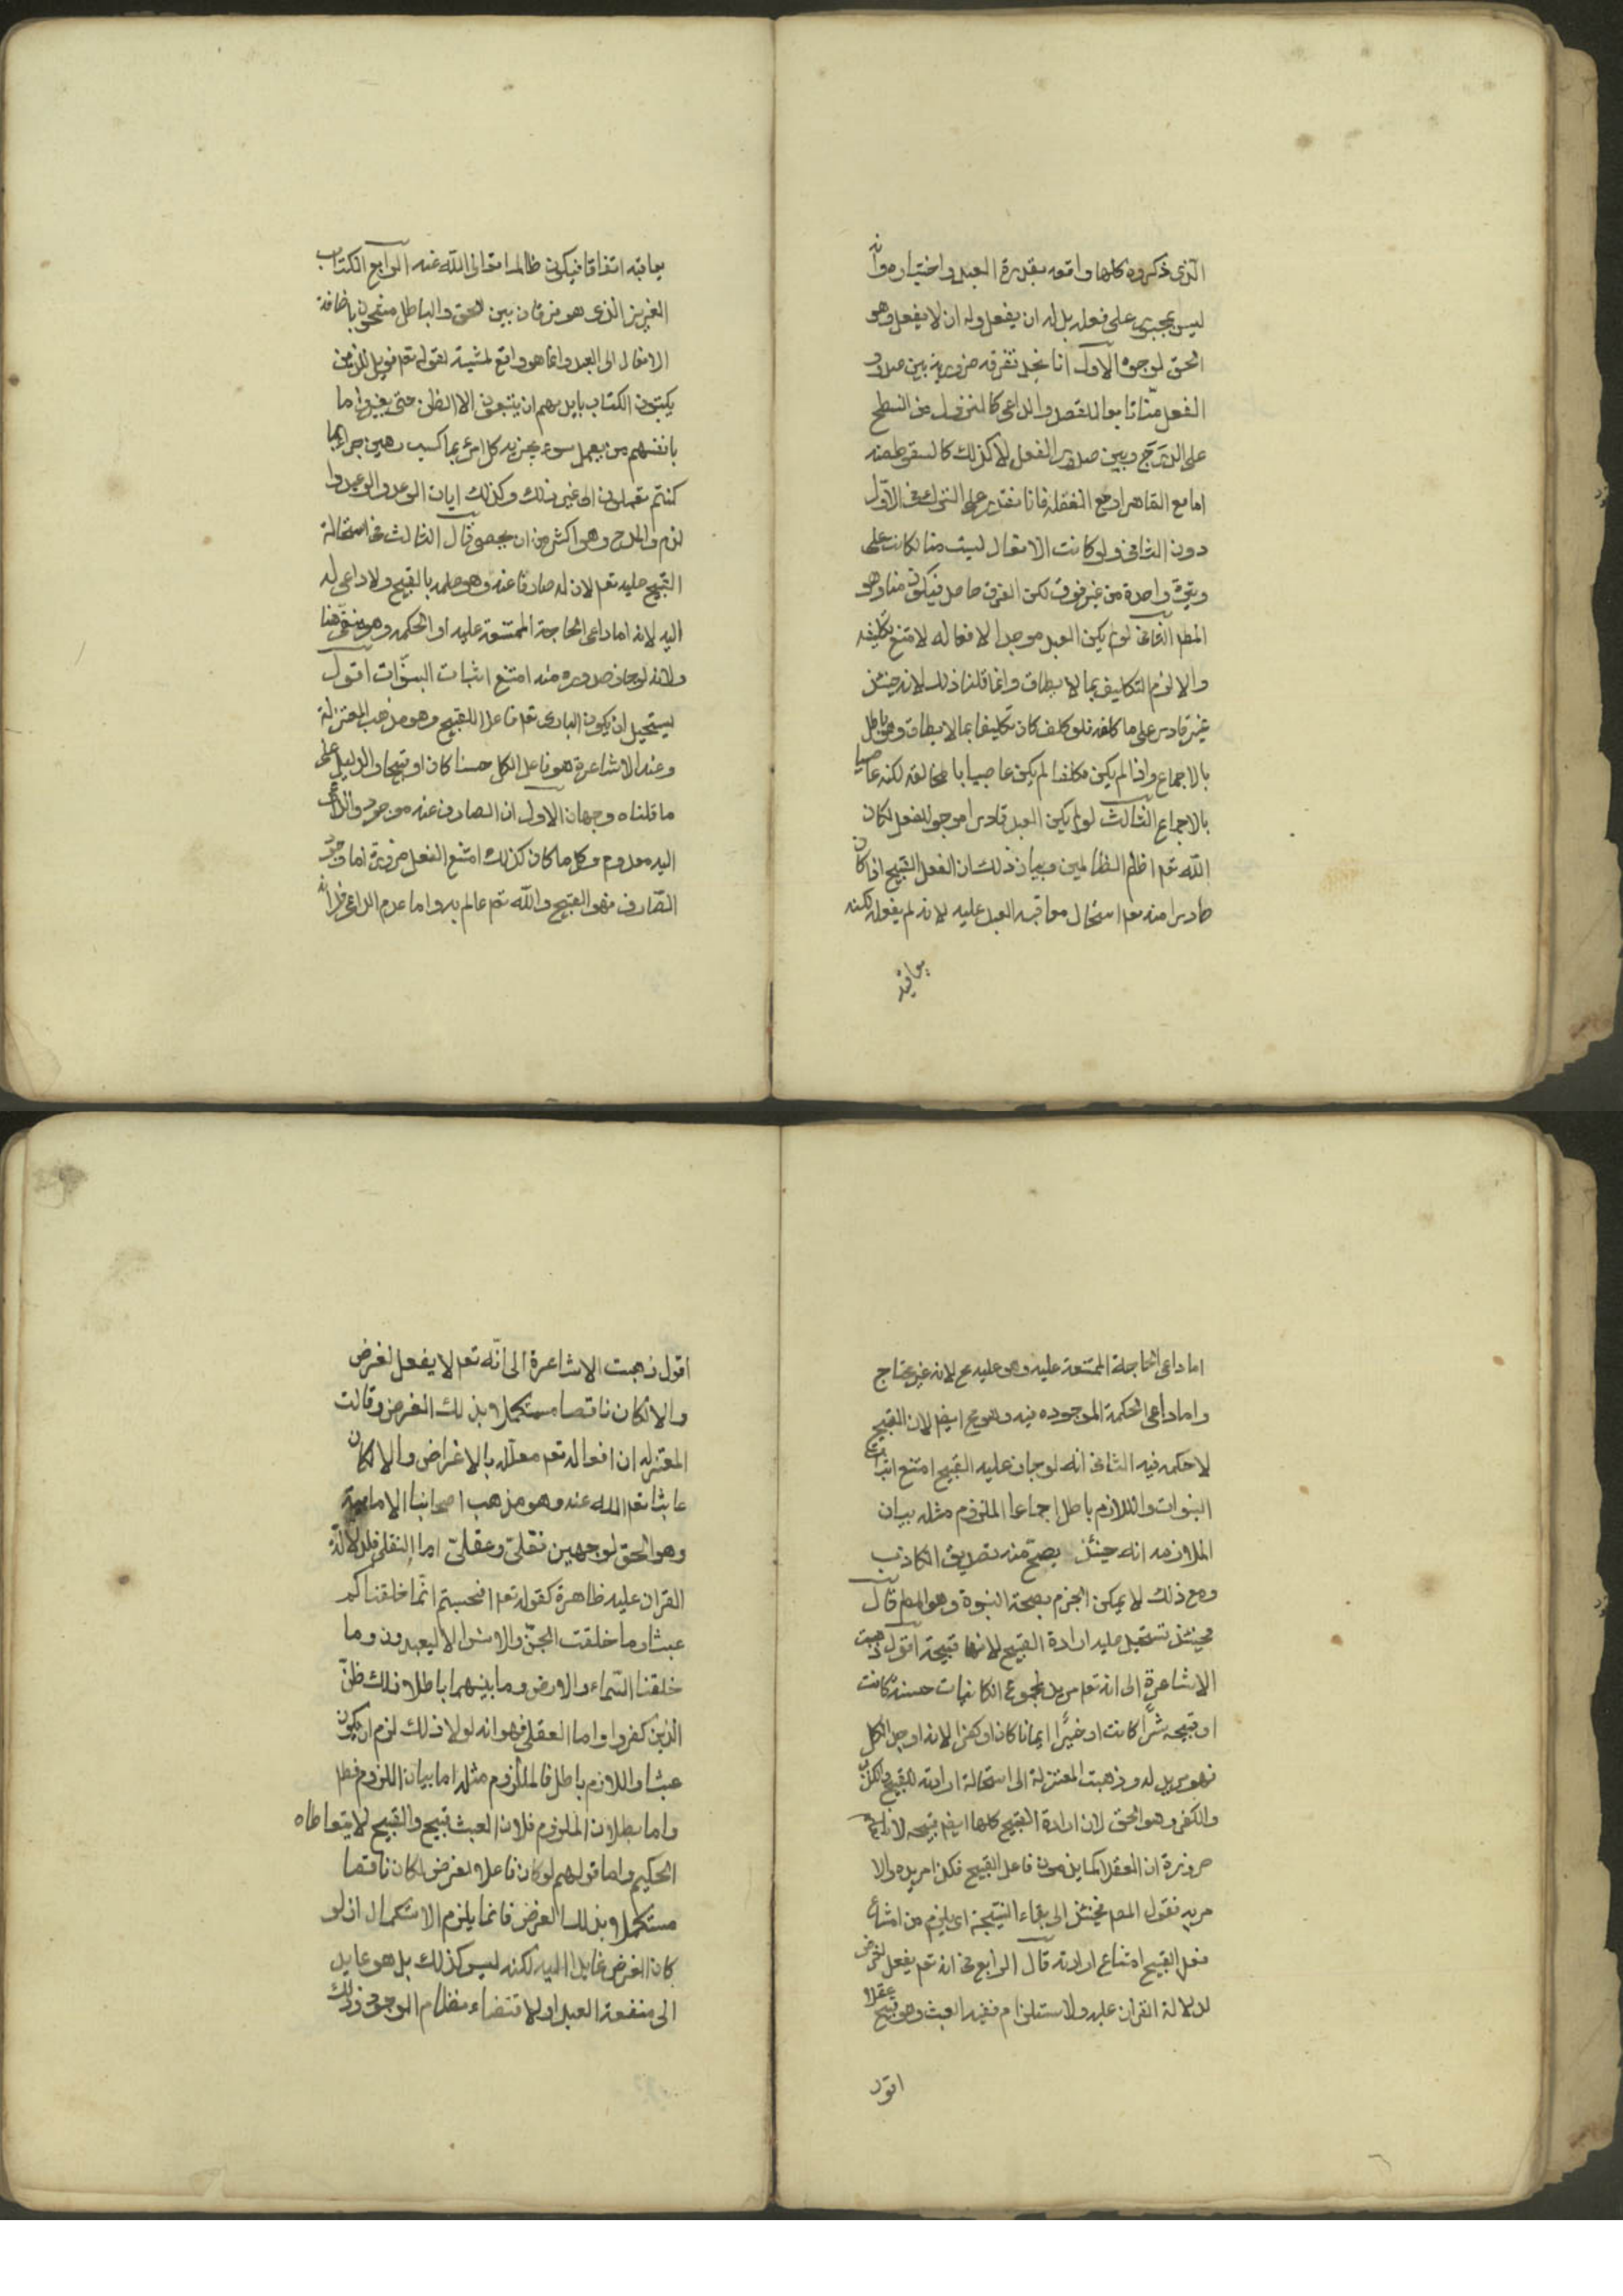 الذى ذكروه كلها واقعه بقدرة العبد واختياره وانه
ليس بمجبور على فعله بل له ان يفعل وله ان لا يفعل وهو
الحق لوجوه الاول انا نجد تفرقه ضروريه بين صدور
الفعل منّا تابعا للقصد والداعى كالنزول من السطح
على الدرج وبين صدور الفعل لا كذلك كالسقوط منه
اما مع القاهر او مع الغفله فانا نقدر على الترك فى الاوّل
دون الثانى ولو كانت الافعال ليست منا لكانت على
وتيرة واحدة من غير فرق لكن الفرق حاصل فيكون منا وهو
المط الثانى لو لم يكن العبد موجدا لافعاله لامتنع تكليفه
والا لزم التكليف بما لا يطاق وانما قلنا ذلك لانه حينئذ
غير قادر على ما كلف فلو كلف كان تكليفا بما لا يطاق وهو باطل
بالاجماع واذا لم يكن مكلفا لم يكن عاصيا بالمخالفه لكنه عاصيا
بالاجماع الثالث لو لم يكن العبد قادرا موجدا للفعل لكان
الله تعم اظلم الظالمين وبيان ذلك ان الفعل القبيح اذا كان
صادرا منه تعم استحال معاقبه العبد عليه لانه لم يفعله لكنه
يعاقبه
يعاقبه اتفاقا فيكون ظالما تعالى الله عنه الرابع الكتاب
العزيز الذى هو فرقان بين الحق والباطل مشحون باضافة
الافعال الى العبد وانها هو واقع لمشية لقوله تعم فويل للذين
يكتبون الكتاب بايديهم ان يتبعون الا الظن حتى يغيروا ما
بانفسهم من يعمل سوء يجز به كل امرئ بما كسب رهين جزاء بما
كنتم تعملون الى غير ذلك وكذلك ايات الوعد والوعيد وا
لذم والمدح وهو اكثر من ان يحصى قال الثالث فى استحالة
القبيح عليه تعم لان له صارفا عنه وهو علمه بالقبيح ولا داعى له
اليه لانه اما داعى الحاجة الممتنعة عليه او الحكمه وهو منتفى هنا
ولانه لو جاز صدوره منه امتنع اثبات النبوّات اقول
يستحيل ان يكون البارى تعم فاعلا للقبيح وهو مذهب المعتزلة
وعند الاشاعرة هو فاعل الكل حسنا كان او قبيحا والدليل على
ما قلناه وجهان الاول ان الصارف عنه موجود والداعى
اليه معدوم وكل ما كان كذلك امتنع الفعل ضرورة اما وجود
الصّارف فهو القبيح والله تعم عالم به واما عدم الداعى فلانه
اما داعى الحاجة الممتنعة عليه وهو عليه مح لانه غير محتاج
واما داعى الحكمة الموجوده فيه وهو مح ايضا لان القبيح
لا حكمه فيه الثانى انه لو جاز عليه القبيح امتنع اثبات
النبوات واللازم باطل اجماعا الملزوم مثله بيان
الملازمه انه حينئذ يصحّ منه تصديق الكاذب
ومع ذلك لا يمكن الجزم بصحة النبوة وهو المط قال
فحينئذ تستحيل عليه ارادة القبيح لانها قبيحة اقول ذهبت
الاشاعرة الى انه تعم مريد لمجموع الكائنات حسنة كانت
او قبيحه شرًّا كانت او خيرًا ايمانا كان او كفرا لانه اوجد الكل
فهو مريد له وذهبت المعتزلة الى استحالة ارادته للقبيح والكل
والكفر وهو الحق لان ارادة القبيح كلها ايضا قبيحه لانا نعلم
ضرورة ان العقلا كما يذمون فاعل القبيح فكذا مريده والا
مر به فقول المص فحينئذ الى بقاء النتيجة اى يلزم من امتناع
فعل القبيح امتناع ارادته قال الرابع فى انه تعم يفعل لغرض
لدلالة القران عليه ولاستلزام نفيه العبث وهو قبيح عقلا
اقول
اقول ذهبت الاشاعرة الى انّه تعم لا يفعل لغرض
والا لكان ناقصا مستكملا بذلك الغرض وقالت
المعتزله ان افعاله تعم معلّله بالاغراض والا لكان
عابثا تعم الله عنه وهو مذهب اصحابنا الامامية
وهو الحق لوجهين نقلىّ وعقلىّ اما النقلى فلدلالة
القران عليه ظاهرة كقوله تعم افحسبتم انّما خلقناكم
عبثا وما خلقت الجنّ والانس الا ليعبدون وما
خلقنا السّماء والارض وما بينهما باطلا ذلك ظنّ
الذين كفروا واما العقلى فهو انه لولا ذلك لزم ان يكون
عبثا واللازم باطل فالملزوم مثله اما بيان اللزوم فظ
واما بطلان الملزوم فلان العبث قبيح والقبيح لا يتعاطاه
الحكيم واما قولهم لو كان فاعلا لغرض لكان ناقصا
مستكملا بذلك الغرض فانما يلزم الاستكمال ان لو
كان الغرض عايدا اليه لكنه ليس كذلك بل هو عايد
الى منفعة العبد او لاقتضاء نظام الوجود ذلك